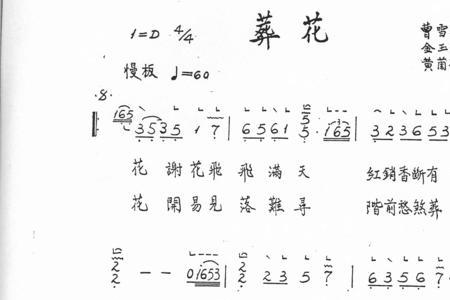 葬花
1=D 4/4
曹雪
金玉
黄菌
慢板 ♩=60
·8·
165 3535 1 7 | 6561 5 5 · 165 | 3236 53
花 謝花飛 飛滿天 紅銷香斷有
花 開易見 落難尋 階前愁煞葬
2 2 — — 01653 | 2 2 2 3 5 7 | 6356 7